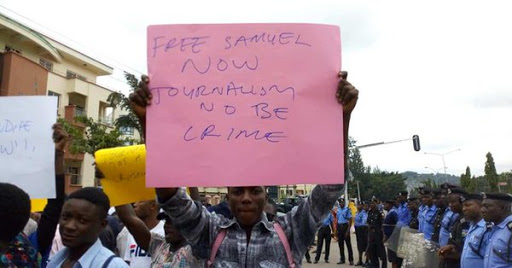 FREE SAMUEL
NOW
JOURNALISM
NO BE
CRIME